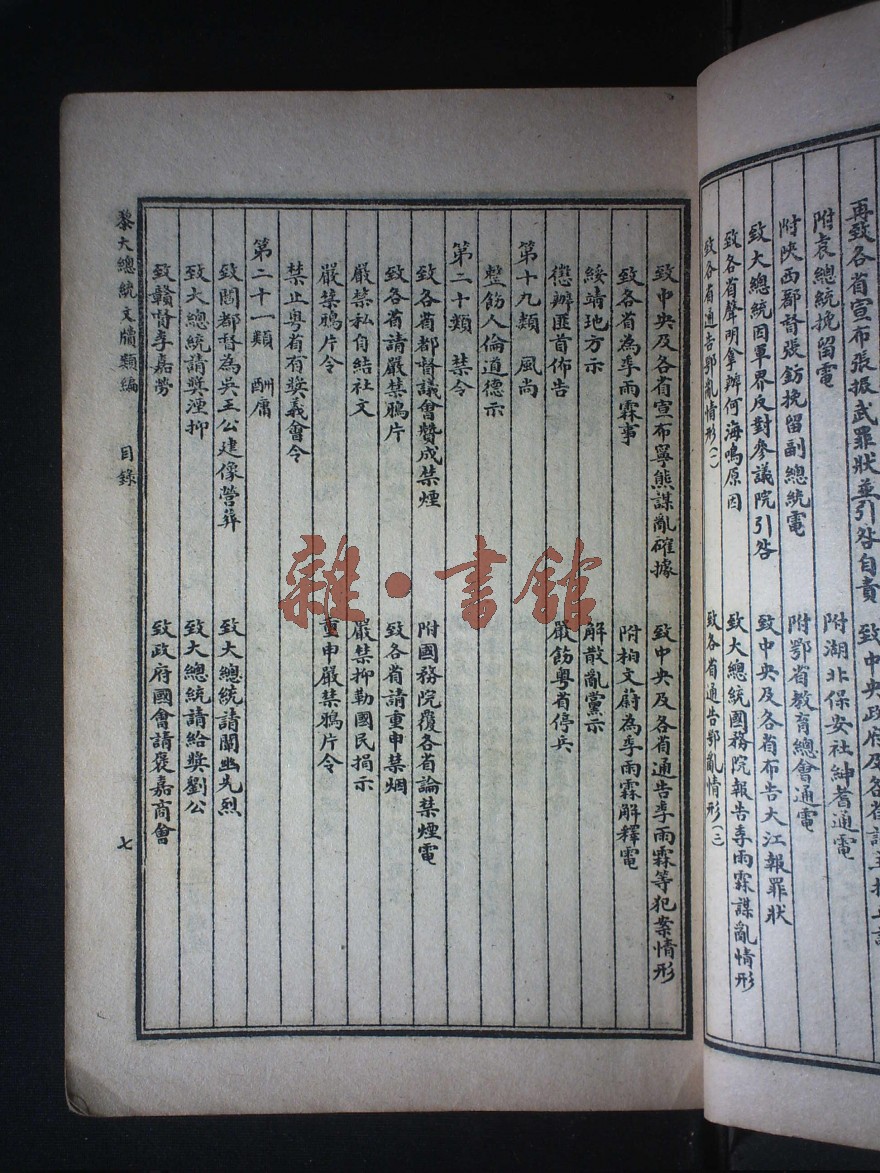 再致各省宣布張振武罪狀並引咎自責
附湖北保安社紳耆通電
附袁總統挽留電
附鄂省教育總會通電
附陝西都督張鈁挽留副總統電
致中央及各省布告大江報罪狀
致大總統因軍界反對參議院引咎
致大總統國務院報告季雨霖謀亂情形
致各省聲明拿辦何海鳴原因
致各省通告鄂亂情形(二)
致各省通告鄂亂情形(一)
致中央及各省宣布寧熊謀亂確據
致中央及各省通告季雨霖等犯案情形
致各省為季雨霖事
附柏文蔚為季雨霖解釋電
綏靖地方示
解散亂黨示
懲辦匪首佈告
嚴飭粵省停兵
第十九類 風尚
整飭人倫道德示
第二十類 禁令
致各省都督議會贊成禁煙
附國務院覆各省論禁煙電
致各省請嚴禁鴉片
致各省請重申禁烟
嚴禁私自結社文
嚴禁抑勒國民捐示
嚴禁鴉片令
重申嚴禁鴉片令
禁止粵省有獎義會令
第二十一類 酬庸
致閩都督為吳王公建像營葬
致大總統請闡幽先烈
致大總統請獎湮抑
致大總統請給獎劉公
致贛督李嘉勞
致政府國會請褒嘉商會
黎大總統文牘類編 目錄 七
雜·書館